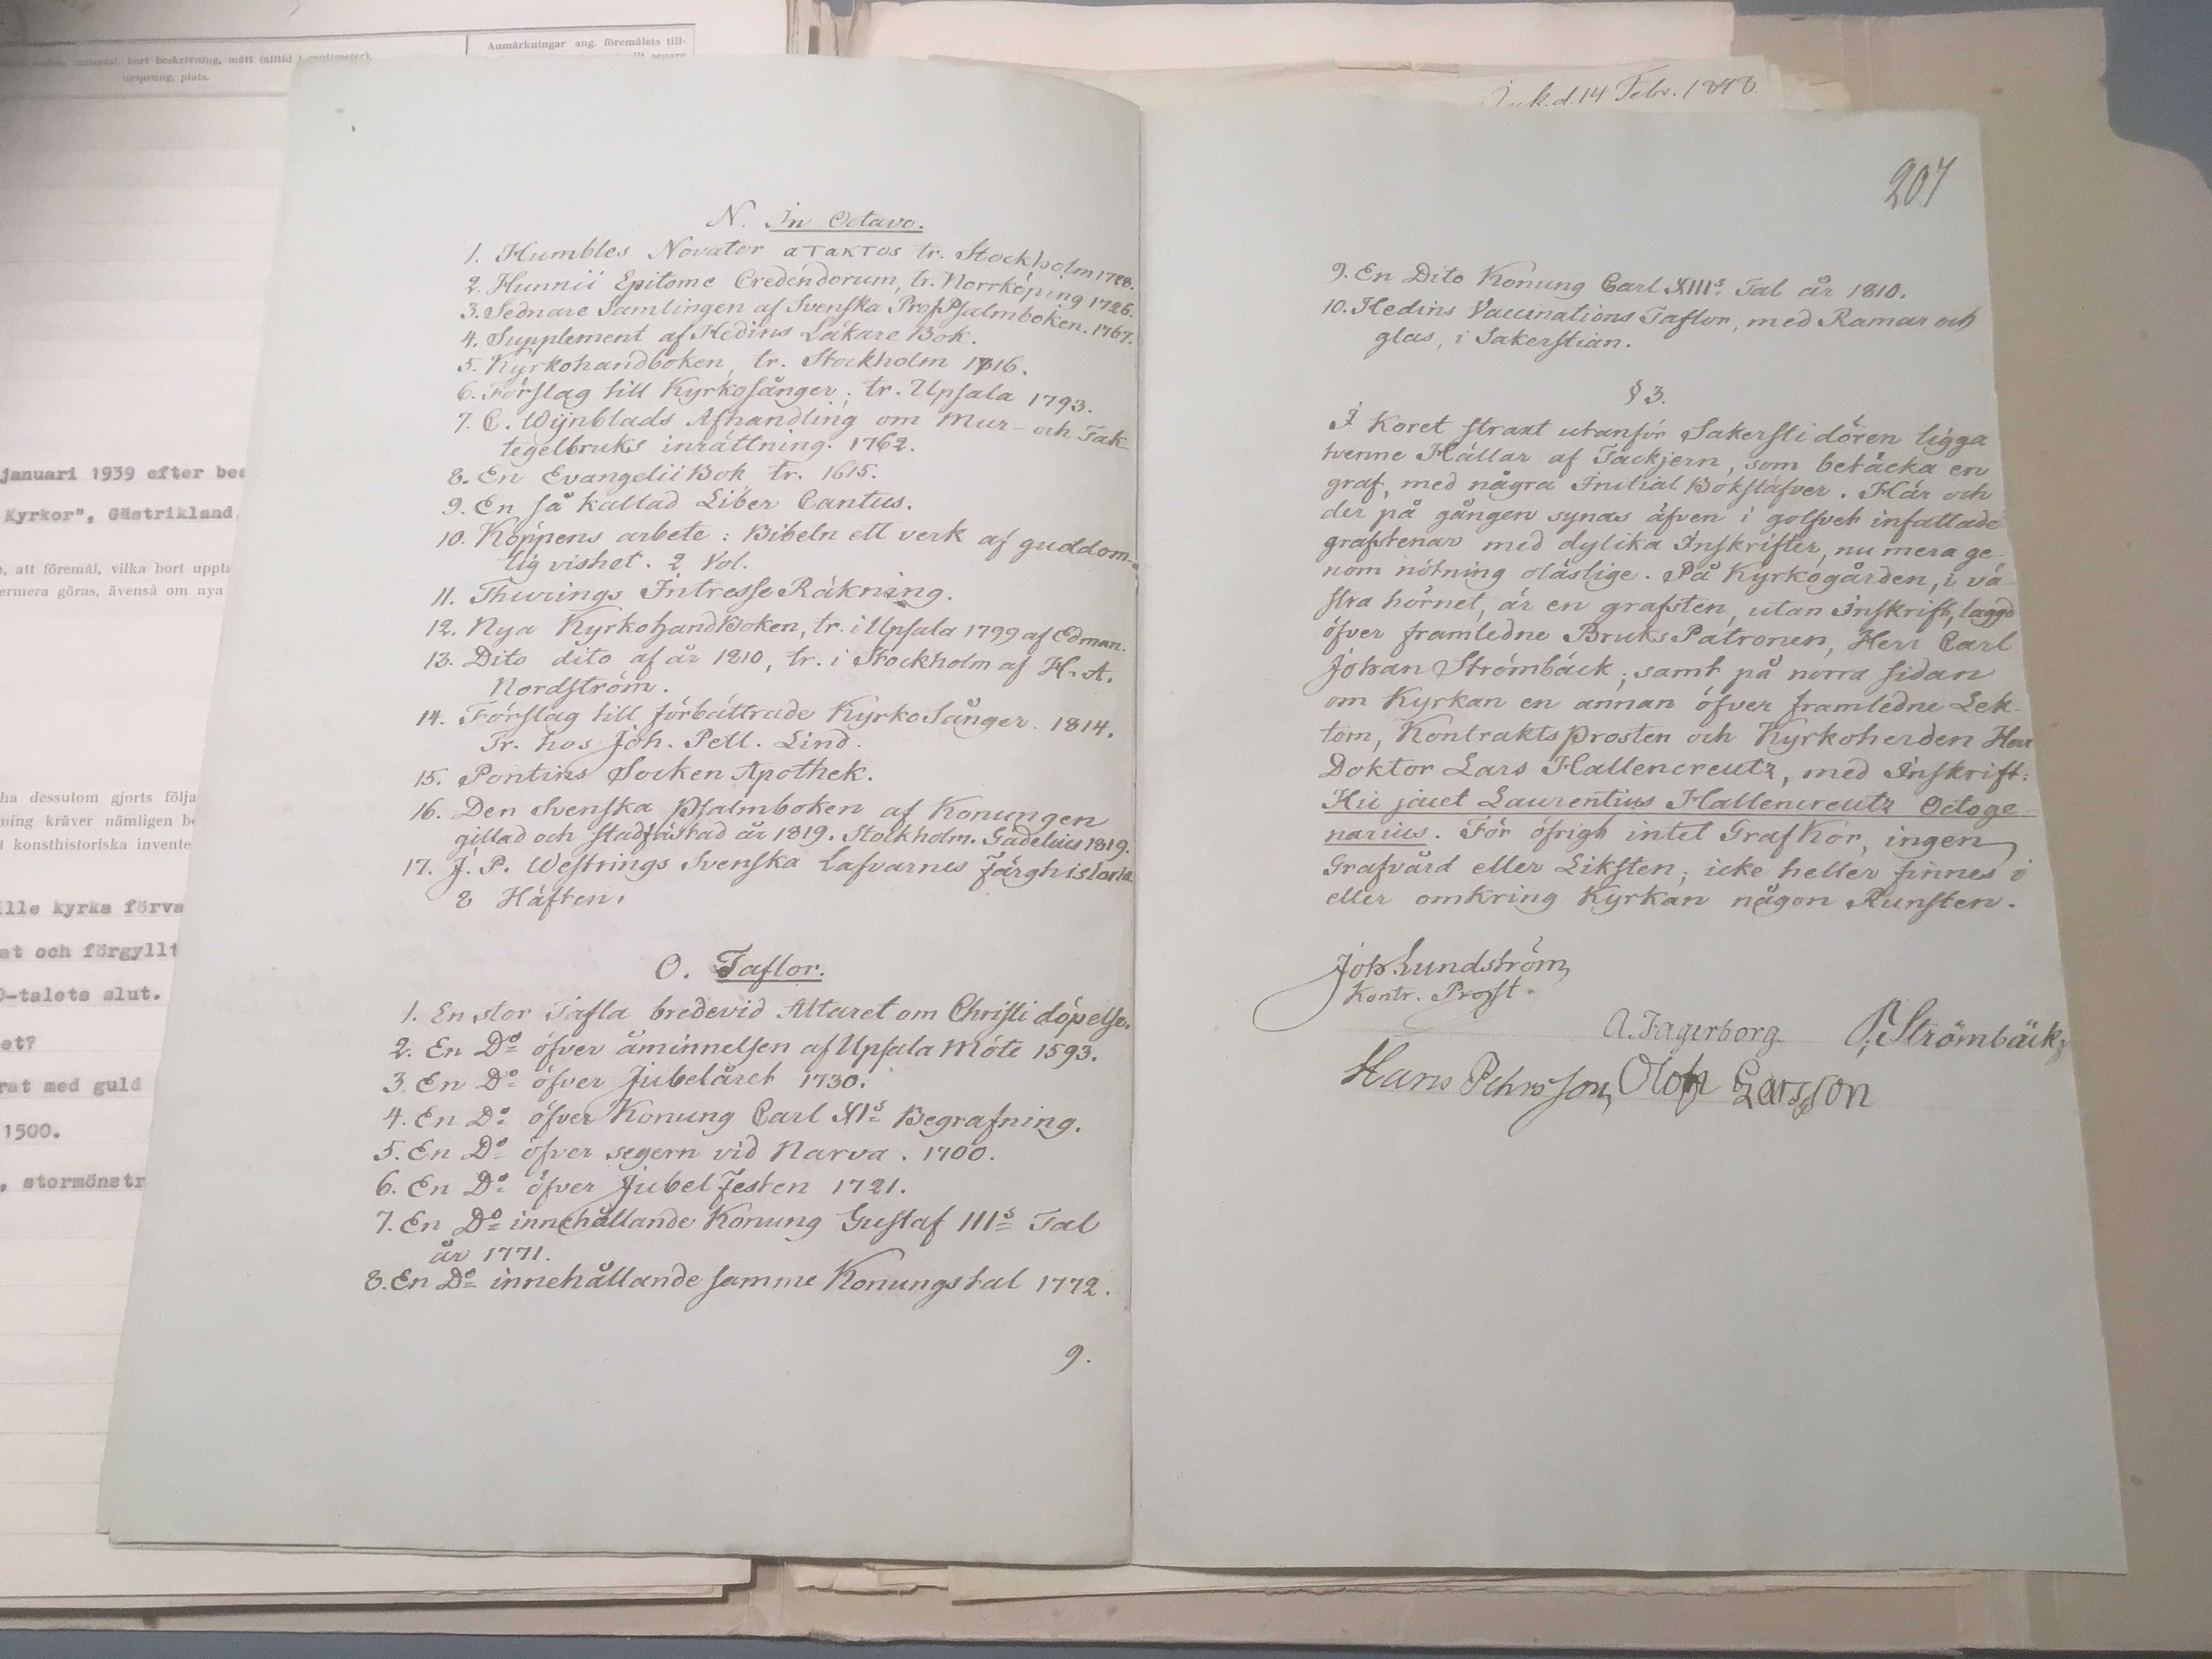 Anmärkningar ang. föremålets till-
material, kort beskrivning, mått (alltid i centimeter),
ursprung, plats.
januari 1939 efter bes
Kyrkor", Gästrikland,
, att föremål, vilka bort uppta
ermera göras, ävenså om nya
ha dessutom gjorts följa
ning kräver nämligen be
konsthistoriska invente
ille kyrka förva
at och förgyllt
0-talets slut.
et?
rat med guld
1500.
, stormönstr
Ink. d. 14 Febr. 1848
N. In Octavo.
1. Humbles Novator aтaктos tr. Stockholm 1728.
2. Hunnii Epitome Credendorum, tr. Norrköping 1726.
3. Sednare Samlingen af Svenska Prof Psalmboken. 1767.
4. Supplement af Hedins Läkare Bok.
5. Kyrkohandboken, tr. Stockholm 1816.
6. Förslag till Kyrkosånger, tr. Upsala 1793.
7. C. Wijnblads Afhandling om Mur- och Tak-
tegelbruks inrättning. 1762.
8. En Evangelii Bok tr. 1615.
9. En så kallad Liber Cantus.
10. Köppens arbete: Bibeln ett verk af guddom-
lig vishet. 2 Vol.
11. Thurings Intresse Räkning.
12. Nya KyrkohandBoken, tr. i Upsala 1799 af Edman.
13. Dito dito af år 1810, tr. i Stockholm af H. A.
Nordström.
14. Förslag till förbättrade KyrkoSånger. 1814.
Tr. hos Joh. Pett. Lind.
15. Pontins Socken Apothek.
16. Den Svenska Psalmboken af Konungen
gillad och stadfästad år 1819. Stockholm. Gadelius 1819.
17. J. P. Westrings Svenska Lafvarnes Färghistoria
8 Häften.
O. Taflor.
1. En stor Tafla bredevid Altaret om Christi döpelse.
2. En Do öfver åminnelsen af Upsala Möte 1593.
3. En Do öfver Jubelåret 1730.
4. En Do öfver Konung Carl XIs Begrafning.
5. En Do öfver segern vid Narva. 1700.
6. En Do öfver JubelFesten 1721.
7. En Do innehållande Konung Gustaf IIIs Tal
år 1771.
8. En Do innehållande samme Konungs tal 1772.
9.
207
9. En Dito Konung Carl XIIIs Tal år 1810.
10. Hedins Vaccinations Taflor, med Ramar och
glas, i Sakerstian.
§ 3.
I Koret straxt utanför Sakerstidören ligga
tvenne Hällar af Tackjern, som betäcka en
graf, med några Initial Bokstäfver. Här och
der på gången synas äfven i golfvet infattade
grafstenar med dylika Inskrifter, nu mera ge-
nom nötning oläslige. På Kyrkogården, i vä-
stra hörnet, är en grafsten, utan Inskrift, lagd
öfver framledne BruksPatronen, Herr Carl
Johan Strömbäck; samt på norra sidan
om Kyrkan en annan öfver framledne Lek-
torn, Kontraktsprosten och Kyrkoherden Herr
Doktor Lars Hallencreutz, med Inskrift:
Hic jacet Laurentius Hallencreutz Octoge-
narius. För öfrigt intet GrafKor, ingen
Grafvård eller Liksten; icke heller finnes i
eller omkring Kyrkan någon Runsten.
Joh Lundström,
Kontr. Prost.
A. Fagerborg. P. Strömbäck,
Hans Pehrsson, Olof Larsson